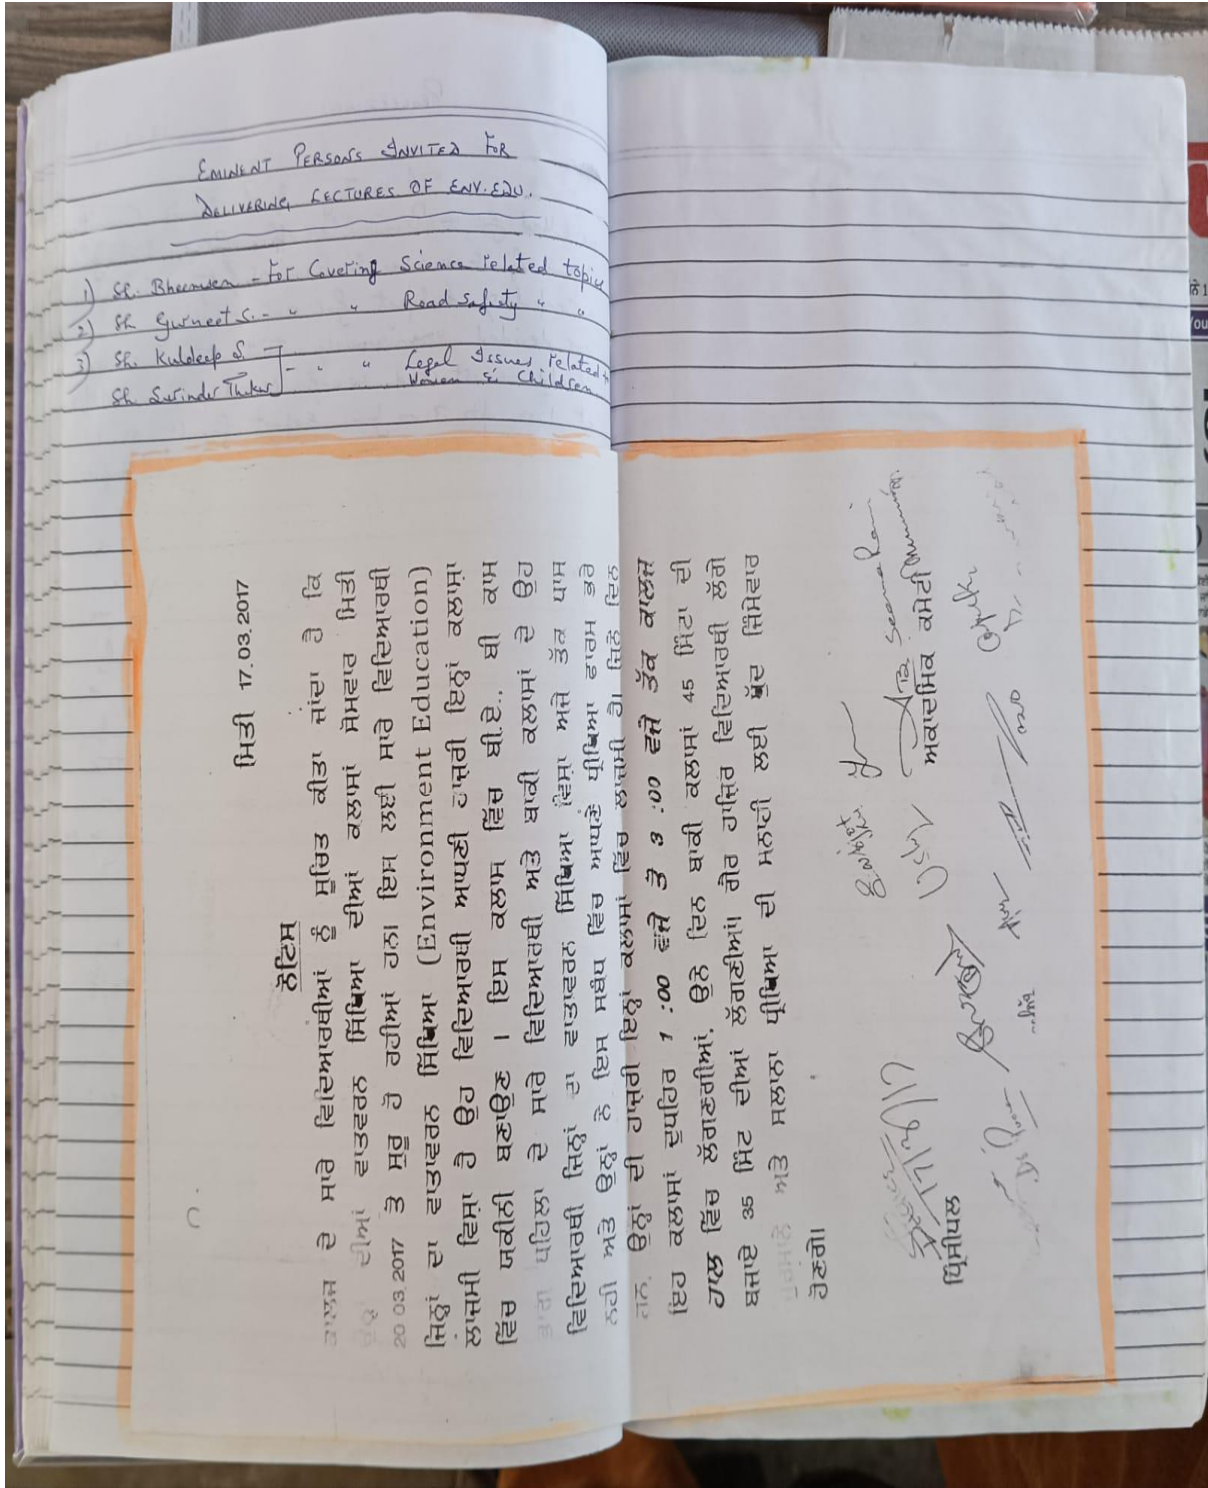 EMINENT PERSONS INVITED FOR
DELIVERING LECTURES OF ENV. EDU.
1) Sh. Bheemsen - For Covering Science related topics
2) Sh Gurneet S. - " " Road Safety " "
3) Sh. Kuldeep S. - " " Legal Issues related to
Sh Surinder Thakur Women & Children
ਮਿਤੀ 17.03.2017
ਨੋਟਿਸ
ਕਾਲਜ ਦੇ ਸਾਰੇ ਵਿਦਿਆਰਥੀਆਂ ਨੂੰ ਸੂਚਿਤ ਕੀਤਾ ਜਾਂਦਾ ਹੈ ਕਿ
ਦੀਆਂ ਵਾਤਾਵਰਨ ਸਿੱਖਿਆ ਦੀਆਂ ਕਲਾਸਾਂ ਸੋਮਵਾਰ ਮਿਤੀ
20 03.2017 ਤੋ ਸ਼ੁਰੂ ਹੋ ਰਹੀਆਂ ਹਨ। ਇਸ ਲਈ ਸਾਰੇ ਵਿਦਿਆਰਥੀ
ਜਿਨ੍ਹਾਂ ਦਾ ਵਾਤਾਵਰਨ ਸਿੱਖਿਆ (Environment Education)
ਲਾਜ਼ਮੀ ਵਿਸ਼ਾ ਹੈ ਉਹ ਵਿਦਿਆਰਥੀ ਆਪਣੀ ਹਾਜ਼ਰੀ ਇਨ੍ਹਾਂ ਕਲਾਸਾਂ
ਵਿੱਚ ਯਕੀਨੀ ਬਣਾਉਣ । ਇਸ ਕਲਾਸ ਵਿੱਚ ਬੀ.ਏ., ਬੀ ਕਾਮ
ਭਾਗ ਪਹਿਲਾ ਦੇ ਸਾਰੇ ਵਿਦਿਆਰਥੀ ਅਤੇ ਬਾਕੀ ਕਲਾਸਾਂ ਦੇ ਉਹ
ਵਿਦਿਆਰਥੀ ਜਿਨ੍ਹਾਂ ਦਾ ਵਾਤਾਵਰਨ ਸਿੱਖਿਆ ਵਿਸ਼ਾ ਅਜੇ ਤੱਕ ਪਾਸ
ਨਹੀ ਅਤੇ ਉਨ੍ਹਾਂ ਨੇ ਇਸ ਸਬੰਧ ਵਿੱਚ ਆਪਣੇ ਪ੍ਰੀਖਿਆ ਫਾਰਮ ਭਰੇ
ਹਨ, ਉਨ੍ਹਾਂ ਦੀ ਹਾਜ਼ਰੀ ਇਨ੍ਹਾਂ ਕਲਾਸਾਂ ਵਿੱਚ ਲਾਜ਼ਮੀ ਹੈ। ਜਿਨੇ ਦਿਨ
ਇਹ ਕਲਾਸਾਂ ਦੁਪਹਿਰ 1 :00 ਵਜੇ ਤੋ 3 :00 ਵਜੇ ਤੱਕ ਕਾਲਜ
ਹਾਲ ਵਿੱਚ ਲੱਗਣਗੀਆਂ, ਉਨੇ ਦਿਨ ਬਾਕੀ ਕਲਾਸਾਂ 45 ਮਿੰਟਾ ਦੀ
ਬਜਾਏ 35 ਮਿੰਟ ਦੀਆਂ ਲੱਗਣੀਆਂ। ਗੈਰ ਹਾਜ਼ਿਰ ਵਿਦਿਆਰਥੀ ਲੱਗੇ
ਜੁਰਮਾਨੇ ਅਤੇ ਸਲਾਨਾ ਪ੍ਰੀਖਿਆ ਦੀ ਮਨਾਹੀ ਲਈ ਖ਼ੁੱਦ ਜਿੰਮੇਵਾਰ
ਹੋਣਗੇ।
17/3/17
Seema Rani
ਪ੍ਰਿੰਸੀਪਲ ਅਕਾਦਮਿਕ ਕਮੇਟੀ